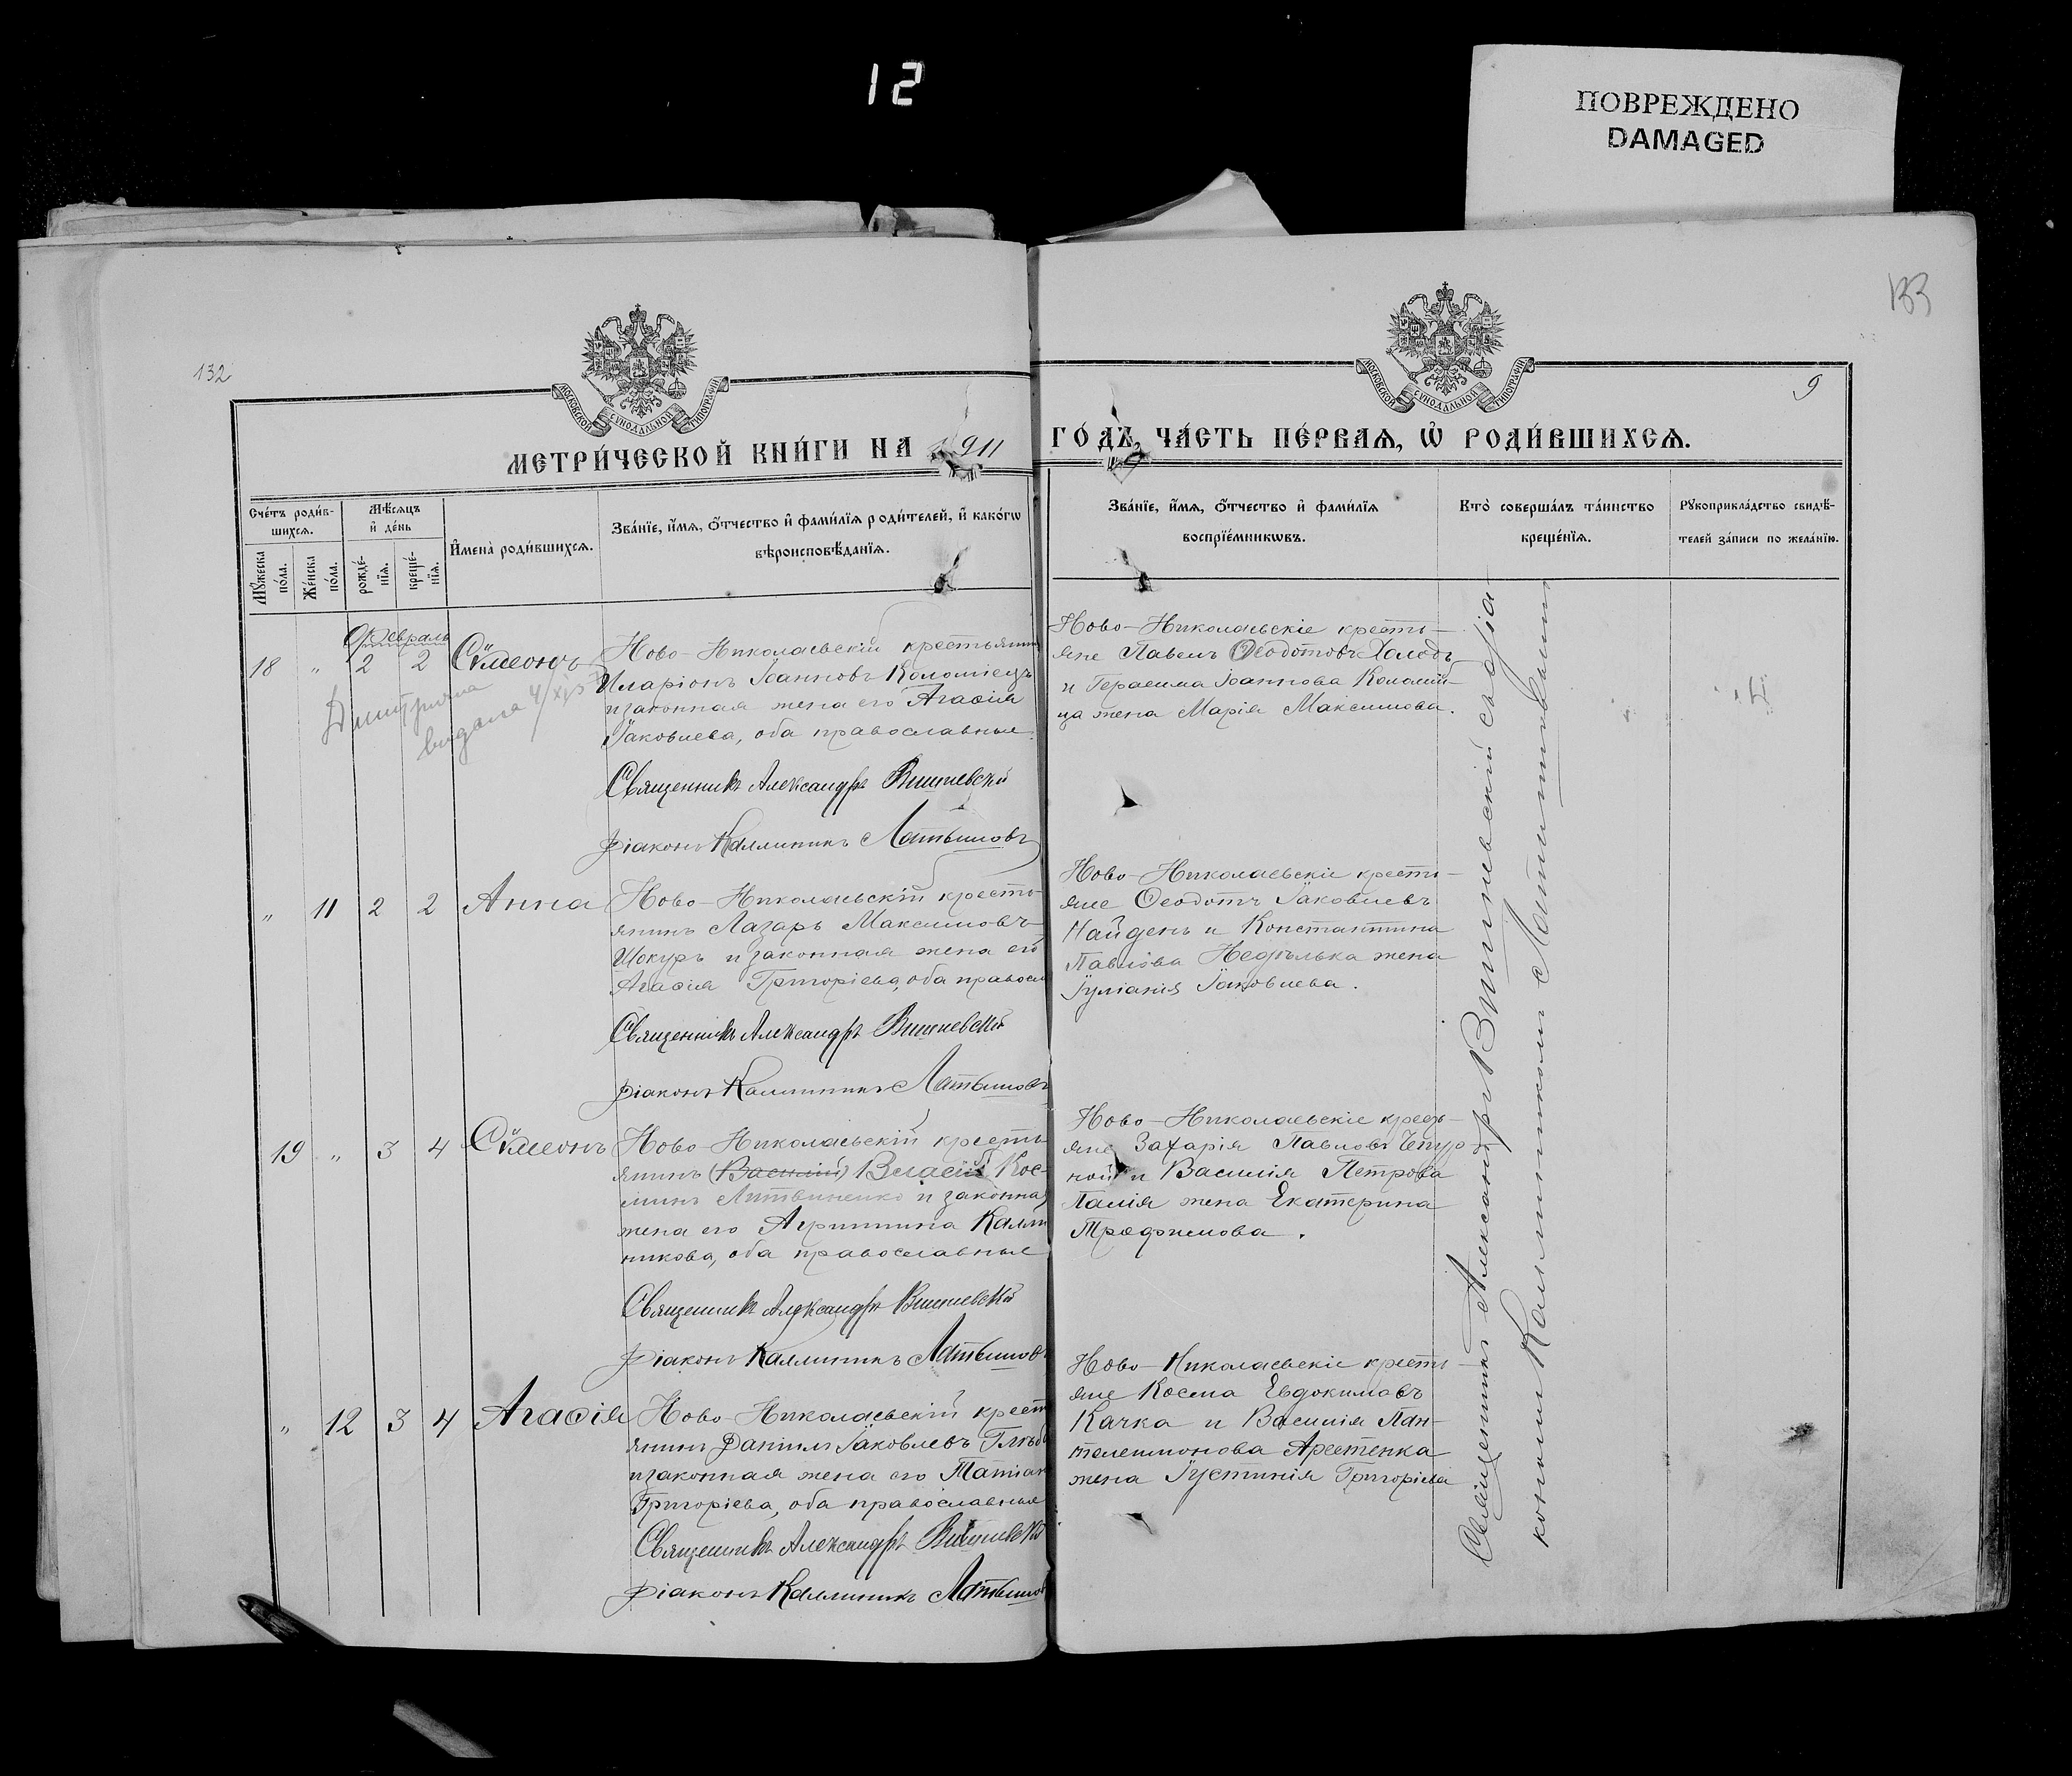 12
ПОВРЕЖДЕНО
DAMAGED
132
133
9
МОСКОВСКОЙ СѴНОДАЛЬНОЙ ТИПОГРАФІИ
МОСКОВСКОЙ СѴНОДАЛЬНОЙ ТИПОГРАФІИ
МЕТРИ́ЧЕСКОЙ КНИ́ГИ НА 1911
ГО́ДЪ, ЧА́СТЬ ПЕ́РВАѦ, Ѽ РОДИ́ВШИХСѦ.
Сче́тъ роди́в-
шихсѧ.
Мꙋ́жеска
по́ла.
Же́нска
по́ла.
Мѣ́сѧцъ
и҆ де́нь
рожде́-
нїѧ.
креще́-
нїѧ.
И҆мена̀ роди́вшихсѧ.
Зва́нїе, и҆́мѧ, ѻ҆́тчество и҆ фами́лїѧ роди́телей, и҆ како́гѡ
вѣроисповѣ́данїѧ.
Зва́нїе, и҆́мѧ, ѻ҆́тчество и҆ фами́лїѧ
воспрїе́мникѡвъ.
Кто̀ соверша́лъ та́инство
креще́нїѧ.
Рꙋкоприкла́дство свидѣ́-
телей за́писи по жела́нїю.
Февраль
18 " 2 2 Сѷмеонъ
Ново-Николаевскій крестьянинъ
Иларіонъ Іоанновъ Коломіецъ
и законная жена его Агаѳія
Іаковлева, оба православные.
Священникъ Александръ Вишневскій
Діаконъ Каллиникъ Латышовъ
Ново-Николаевскіе кресть-
яне Павелъ Ѳеодотовъ Холодъ
и Герасима Іоаннова Коломій-
ца жена Марія Максимова.
выдана 4/XI
" 11 2 2 Анна
Ново-Николаевскій кресть-
янинъ Лазарь Максимовъ
Шокуръ и законная жена его
Агаѳія Григоріева, оба правосл
Священникъ Александръ Вишневскій
Діаконъ Каллиникъ Латышовъ
Ново-Николаевскіе кресть-
яне Ѳеодотъ Іаковлевъ
Найденъ и Константина
Павлова Недѣлька жена
Іуліанія Іаковлева.
19 " 3 4 Сѷмеонъ
Ново-Николаевскій кресть-
янинъ (Василій) Власій Кос-
минъ Литвиненко и законная
жена его Агриппина Калли
никова, оба православные
Священникъ Александръ Вишневскій
Діаконъ Каллиникъ Латышовъ
Ново-Николаевскіе кресть-
яне Захарія Павловъ Чепур-
ной и Василія Петрова
Палія жена Екатерина
Трофимова.
" 12 3 4 Агаѳія
Ново-Николаевскій крест
янинъ Даніилъ Іаковлевъ
и законная жена его Татіан
Григоріева, оба православные
Священникъ Александръ Вишневскій
Діаконъ Каллиникъ Латышов
Ново-Николаевскіе кресть-
яне Косма Евдокимовъ
Качка и Василія Пан-
телеимонова Арестенка
жена Іустинія Григоріева
Священникъ Александръ Вишневскій съ діа
кономъ Каллиникомъ Латышовымъ